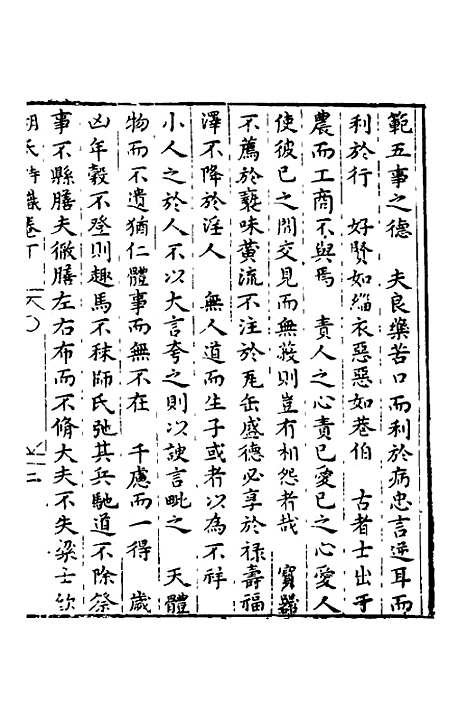 範五事之德　夫良藥苦口而利於病忠言逆耳而
利於行　好賢如緇衣惡惡如巷伯　古者士出于
農而工商不與焉　責人之心責己愛己之心愛人
使彼己之間交見而無蔽則豈有相怨者哉　寶器
不薦於褻味黃流不注於瓦缶盛德必享於祿壽福
澤不降於淫人　無人道而生子或者以為不祥
小人之於人不以大言夸之則以諛言毗之　天體
物而不遺猶仁體事而無不在　千慮而一得　歲
凶年穀不登則趣馬不秣師氏弛其兵馳道不除祭
事不縣膳夫徹膳左右布而不脩大夫不失梁士飲
胡氏詩識卷下